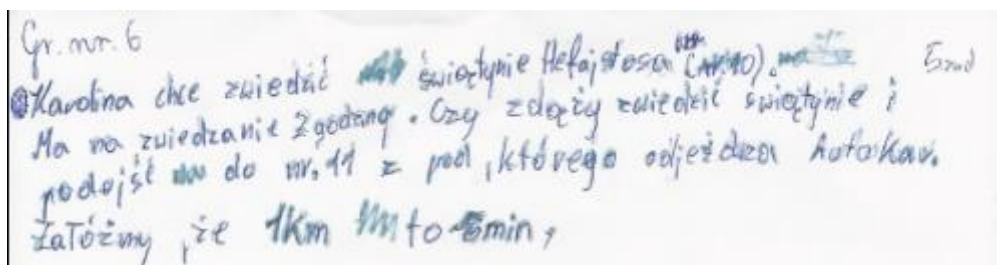 Gr. nr. 6
Karolina chce zwiedzić świątynie Hefajstosa (nr.10).
Ma na zwiedzanie 2 godzną. Czy zdąży zwiedzić świątynie i
podejść do nr. 11 z pod, którego odjeżdza Autokar.
Załóżmy, że 1km to 5min,